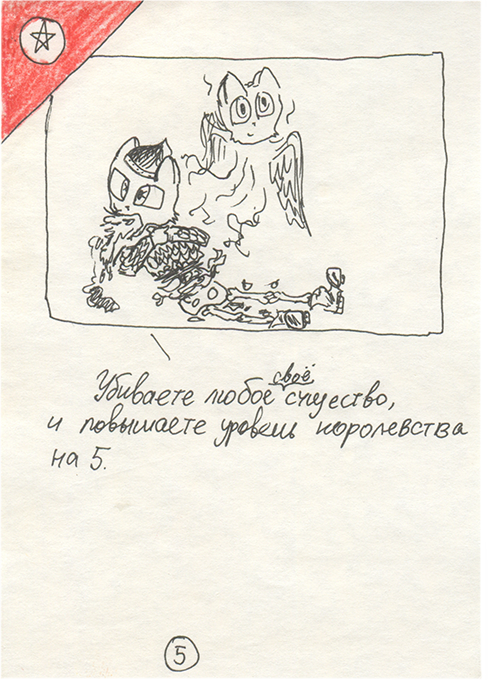 Убиваете любое своё существо,
и повышаете уровень королевства
на 5.
5